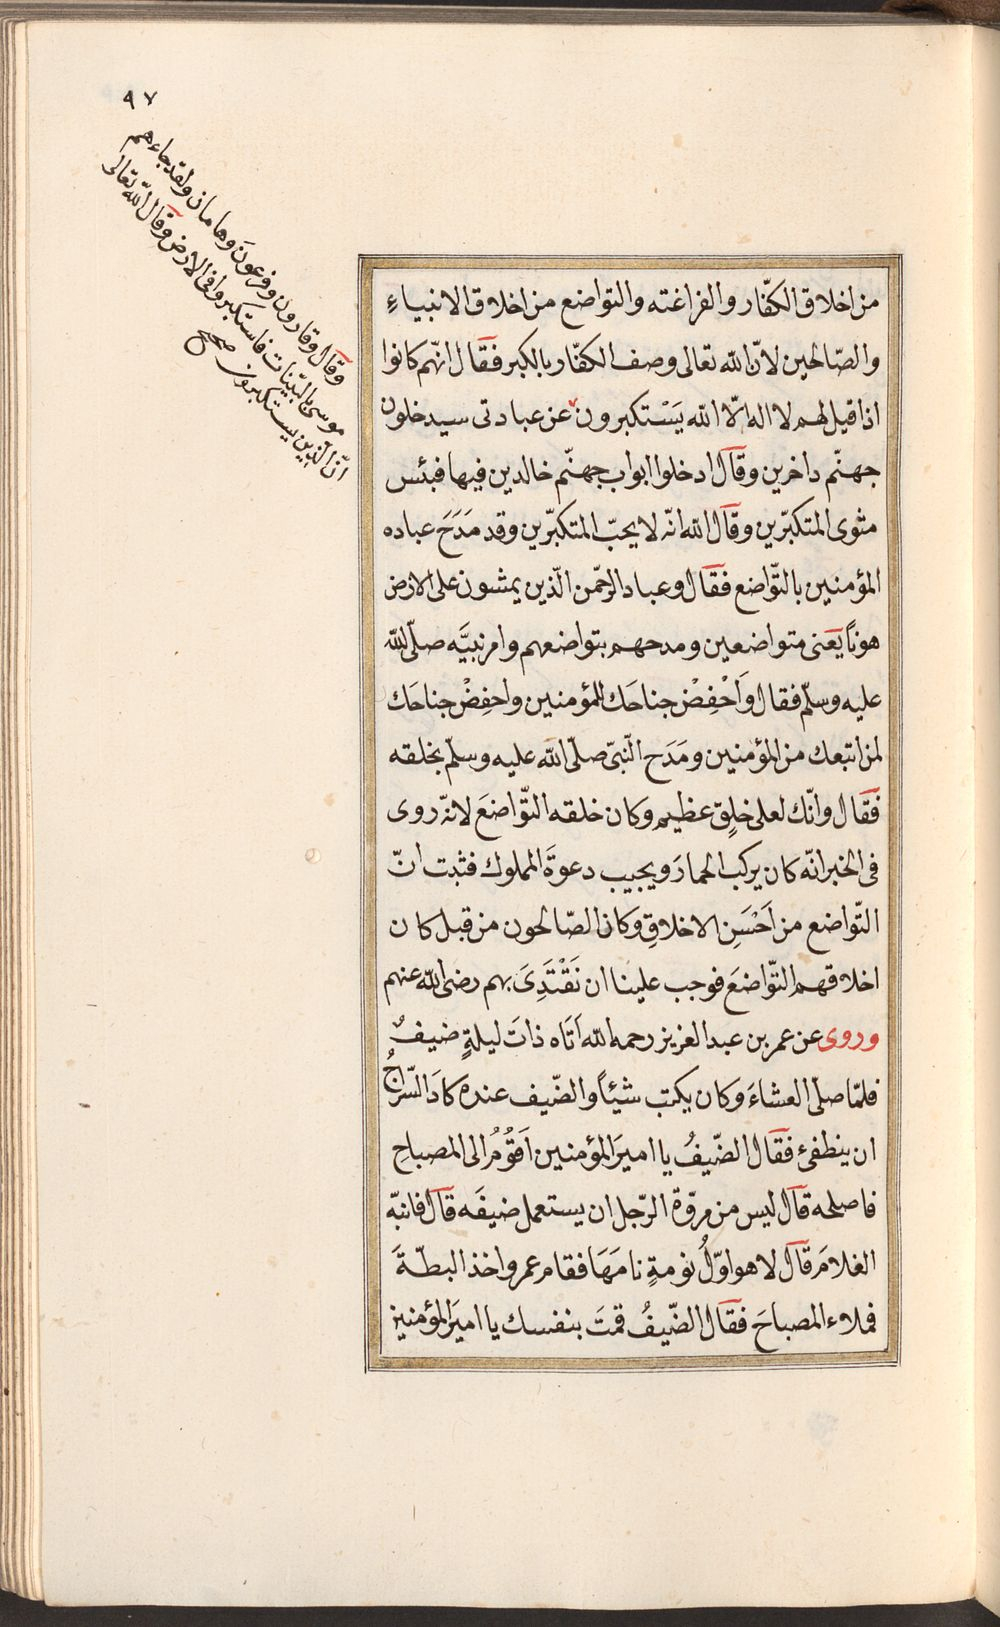 ٩٧
وقال وقارون وفرعون وهامان ولقد جاءهم
موسى بالبيّنات فاستكبروا فى الارض وقال الله تعالى
انّ الّذين يستكبرون صحح
من اخلاق الكفّار والفراغنه والتواضع من اخلاق الانبياءِ
والصّالحين لانّ الله تعالى وصف الكفّار بالكبر فقال انّهم كانوا
اذا قيل لهم لا اله الّا الله يَسْتكبرون عن عبادتى سيدخلون
جهنّم داخرين وقال ادخلوا ابواب جهنّم خالدين فيها فبئس
مثوى المتكبّرين وقال الله انّه لا يحبّ المتكبّرين وقد مَدَحَ عباده
المؤمنين بالتّواضع فقال وعباد الرحّمن الّذين يمشون على الارض
هوناً يعنى متواضعين ومدحهم بتواضعهم وامر نبيَّه صلّى الله
عليه وسلّم فقال وَاخْفِضْ جناحَك للمؤمنين واخفِضْ جناحَك
لمن اتبعك من المؤمنين ومَدَح النّبىّ صلّى الله عليه وسلّم بخلقه
فقال وانّك لعلى خلقٍ عظيم وكان خلقه التّواضعَ لانّه روى
فى الخبر انّه كان يركب الحمارَ ويجيب دعوةَ المملوك فثبت انّ
التّواضع من اَحْسَنِ الاخلاقِ وكان الصّالحون من قبل كان
اخلاقهم التّواضعَ فوجب علينا ان نَقْتَدِىَ بهم رضى الله عنهم
وروى عن عمر بن عبد العزيز رحمه الله اَتَاه ذاتَ ليلةٍ ضيفٌ
فلمّا صلّى العشاءَ وكان يكتب شيئاً والضّيف عنده كادَ السّراجُ
ان ينطفئ فقال الضّيفُ يا اميرَ المؤمنين اَقُومُ الى المصباحِ
فاصلحه قال ليس من مروّة الرّجل ان يستعمل ضيفَه قال فانبّه
الغلامَ قال لا هو اوّلُ نومةٍ نامَهَا فقام عمر واخذ البطّةَ
فملاء المصباحَ فقال الضّيفُ قمتَ بنفسك يا اميرَ المؤمنين